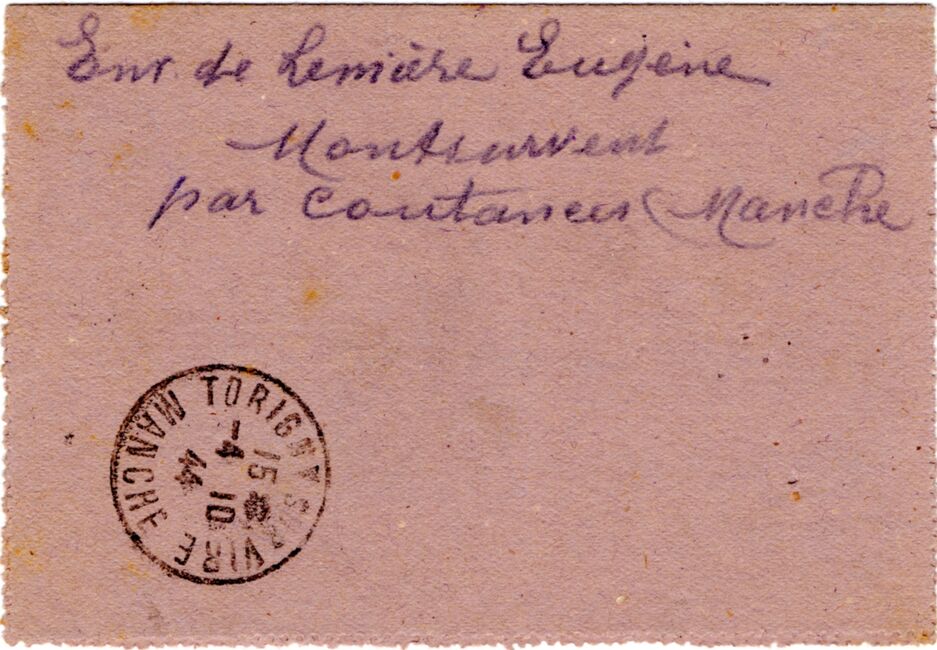 Env. de Lemière Eugène
Montsurvent
par Coutances (Manche
TORIGNY S. VIRE
MANCHE
15
-4 10
44